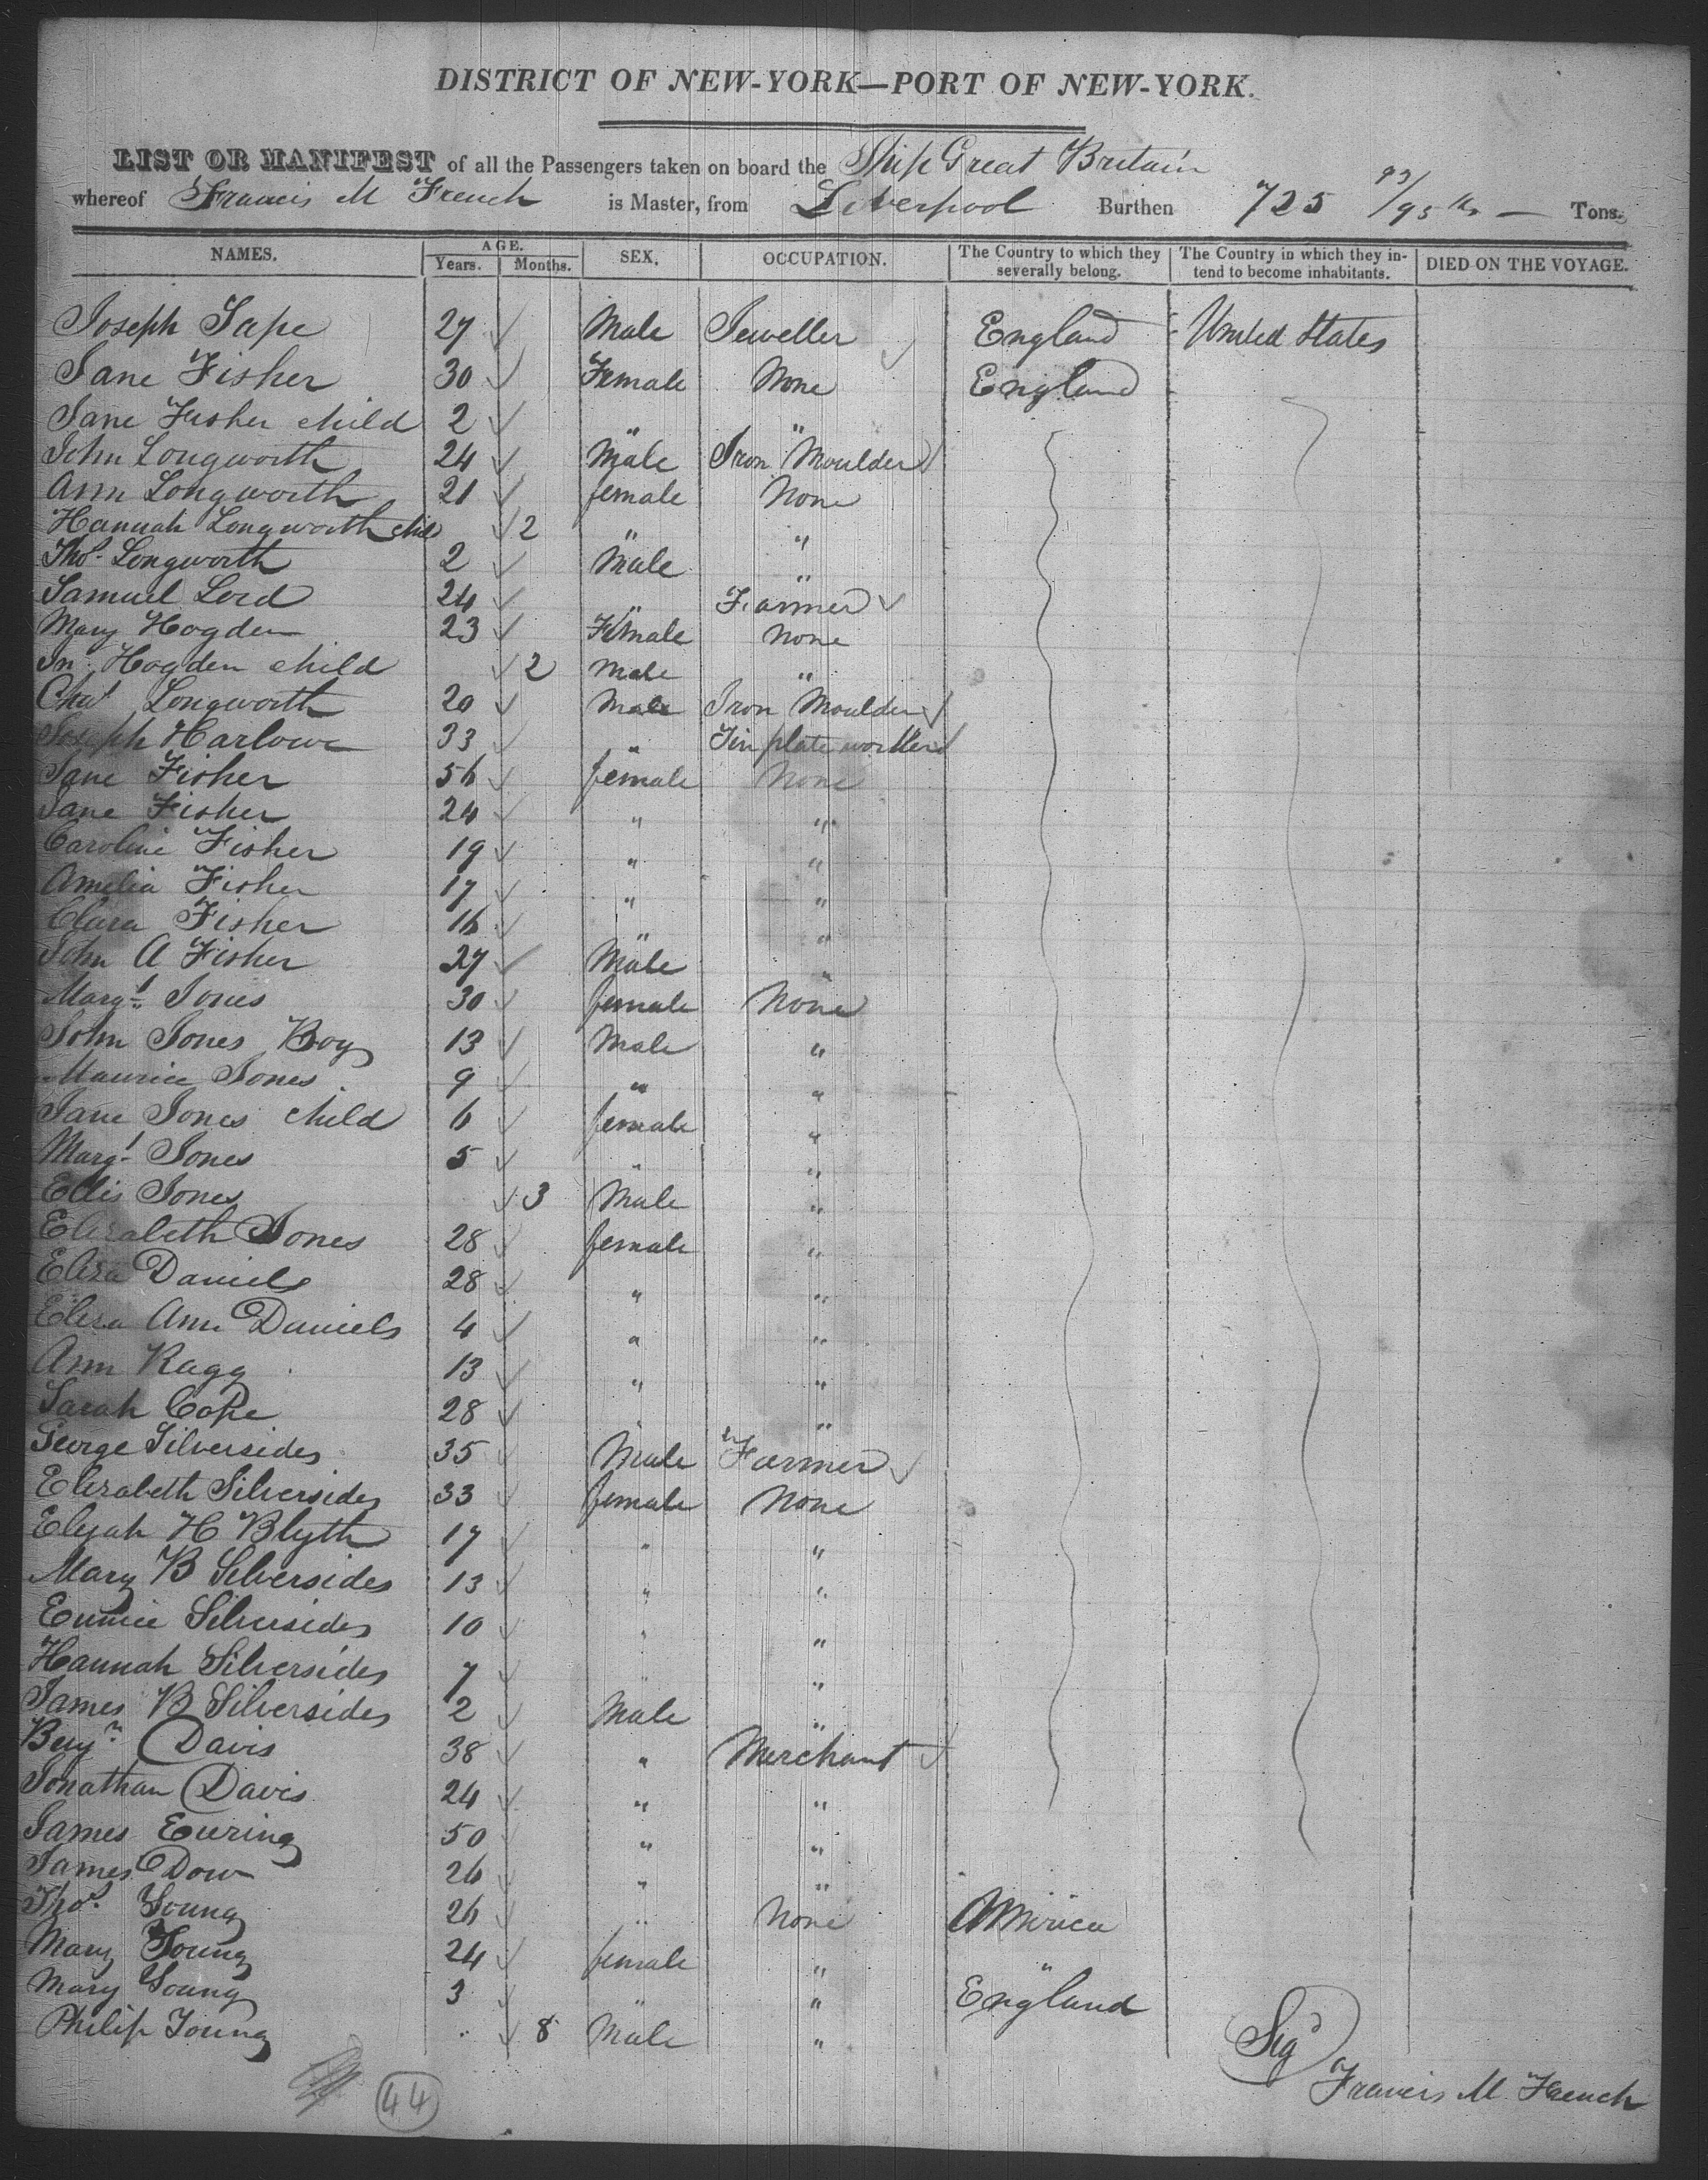 DISTRICT OF NEW-YORK—PORT OF NEW-YORK.
LIST OR MANIFEST of all the Passengers taken on board the Ship Great Britain
whereof Francis M French is Master, from Liverpool Burthen 725 93/95ths — Tons.
NAMES. AGE. Years. Months. SEX. OCCUPATION. The Country to which they severally belong. The Country in which they intend to become inhabitants. DIED ON THE VOYAGE.
Joseph Sape 27 Male Jeweller England United States
Jane Fisher 30 Female None England
Jane Fisher child 2 " "
John Longworth 24 Male Iron Moulder
Ann Longworth 21 female None
Hannah Longworth child 2 " "
Thos. Longworth 2 Male "
Samuel Lord 24 " Farmer
Mary Hogden 23 Female None
Jn. Hogden child 2 Male "
Chas Longworth 20 Male Iron Moulder
Joseph Harlowe 33 " Tin plate worker
Jane Fisher 56 female None
Jane Fisher 24 " "
Caroline Fisher 19 " "
Amelia Fisher 17 " "
Clara Fisher 16 " "
John A Fisher 27 Male "
Margt. Jones 30 female None
John Jones Boy 13 Male "
Maurice Jones 9 " "
Jane Jones child 6 female "
Margt. Jones 5 " "
Ellis Jones 3 Male "
Elizabeth Jones 28 female "
Eliza Daniels 28 " "
Eliza Ann Daniels 4 " "
Ann Ragg 13 " "
Sarah Cope 28 "
George Silversides 35 Male Farmer
Elizabeth Silversides 33 female None
Elijah H Blyth 17 " "
Mary B Silversides 13 " "
Eunice Silversides 10 " "
Hannah Silversides 7 " "
James B Silversides 2 Male "
Benjn. Davis 38 " Merchant
Jonathan Davis 24 " "
James Euring 50 " "
James Dow 26 " "
Thos. Young 26 " None America
Mary Young 24 female " "
Mary Young 3 " " England
Philip Young 8 Male "
Sigd
Francis M French
44